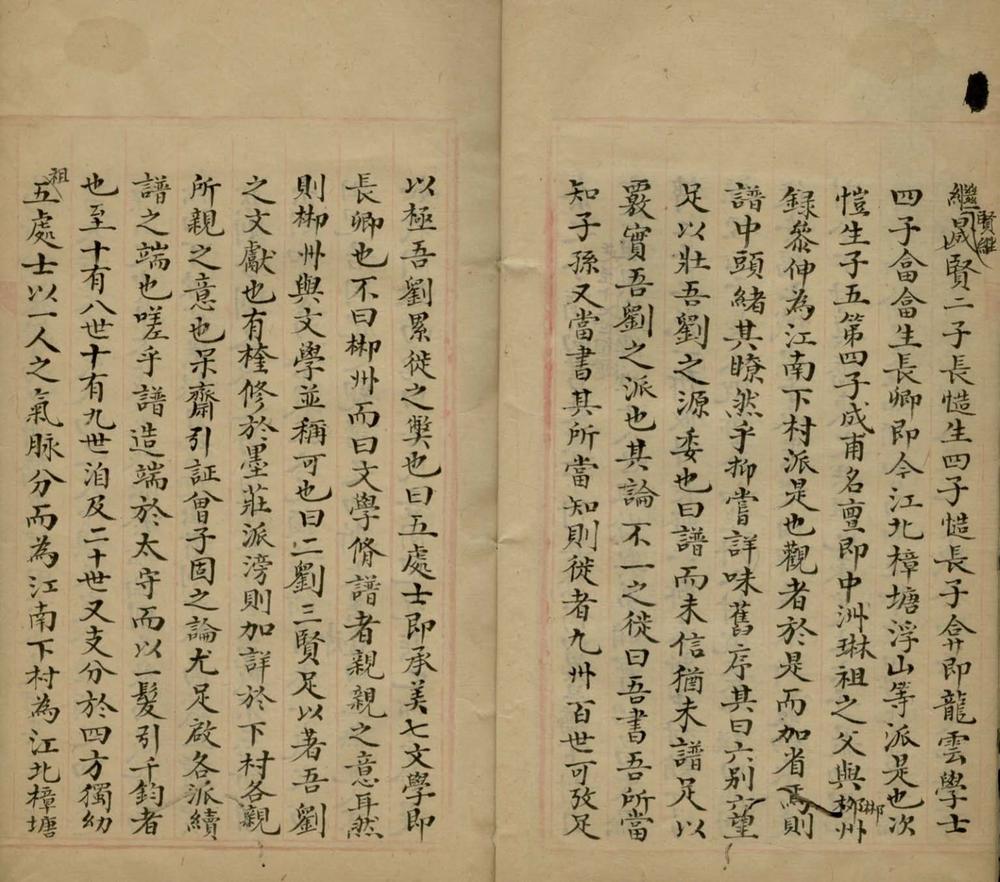 繼晟賢二子長慥生四子慥長子弇即龍雲學士
賢繼
四子畲畲生長卿即今江北樟塘浮山等派是也次
愷生子五第四子成甫名亶即中洲琳祖之父與郴州
郴
錄叅伸為江南下村派是也觀者於是而加省焉則
譜中頭緒其瞭然乎抑嘗詳味舊序其曰六别望
足以壯吾劉之源委也曰譜而未信猶未譜足以
覈實吾劉之派也其論不一之徙曰吾書吾所當
知子孫又當書其所當知則徙者九州百世可攷足
以極吾劉累徙之獘也曰五處士即承美七文學即
長卿也不曰郴州而曰文學脩譜者親親之意耳然
則郴州與文學並稱可也曰二劉三賢足以著吾劉
之文獻也有楏修於墨莊派滂則加詳於下村各親
所親之意也呆齋引証曾子固之論尤足啟各派續
譜之端也嗟乎譜造端於太守而以一髮引千鈞者
也至十有八世十有九世洎及二十世又支分於四方獨幼
祖
五處士以一人之氣脉分而為江南下村為江北樟塘